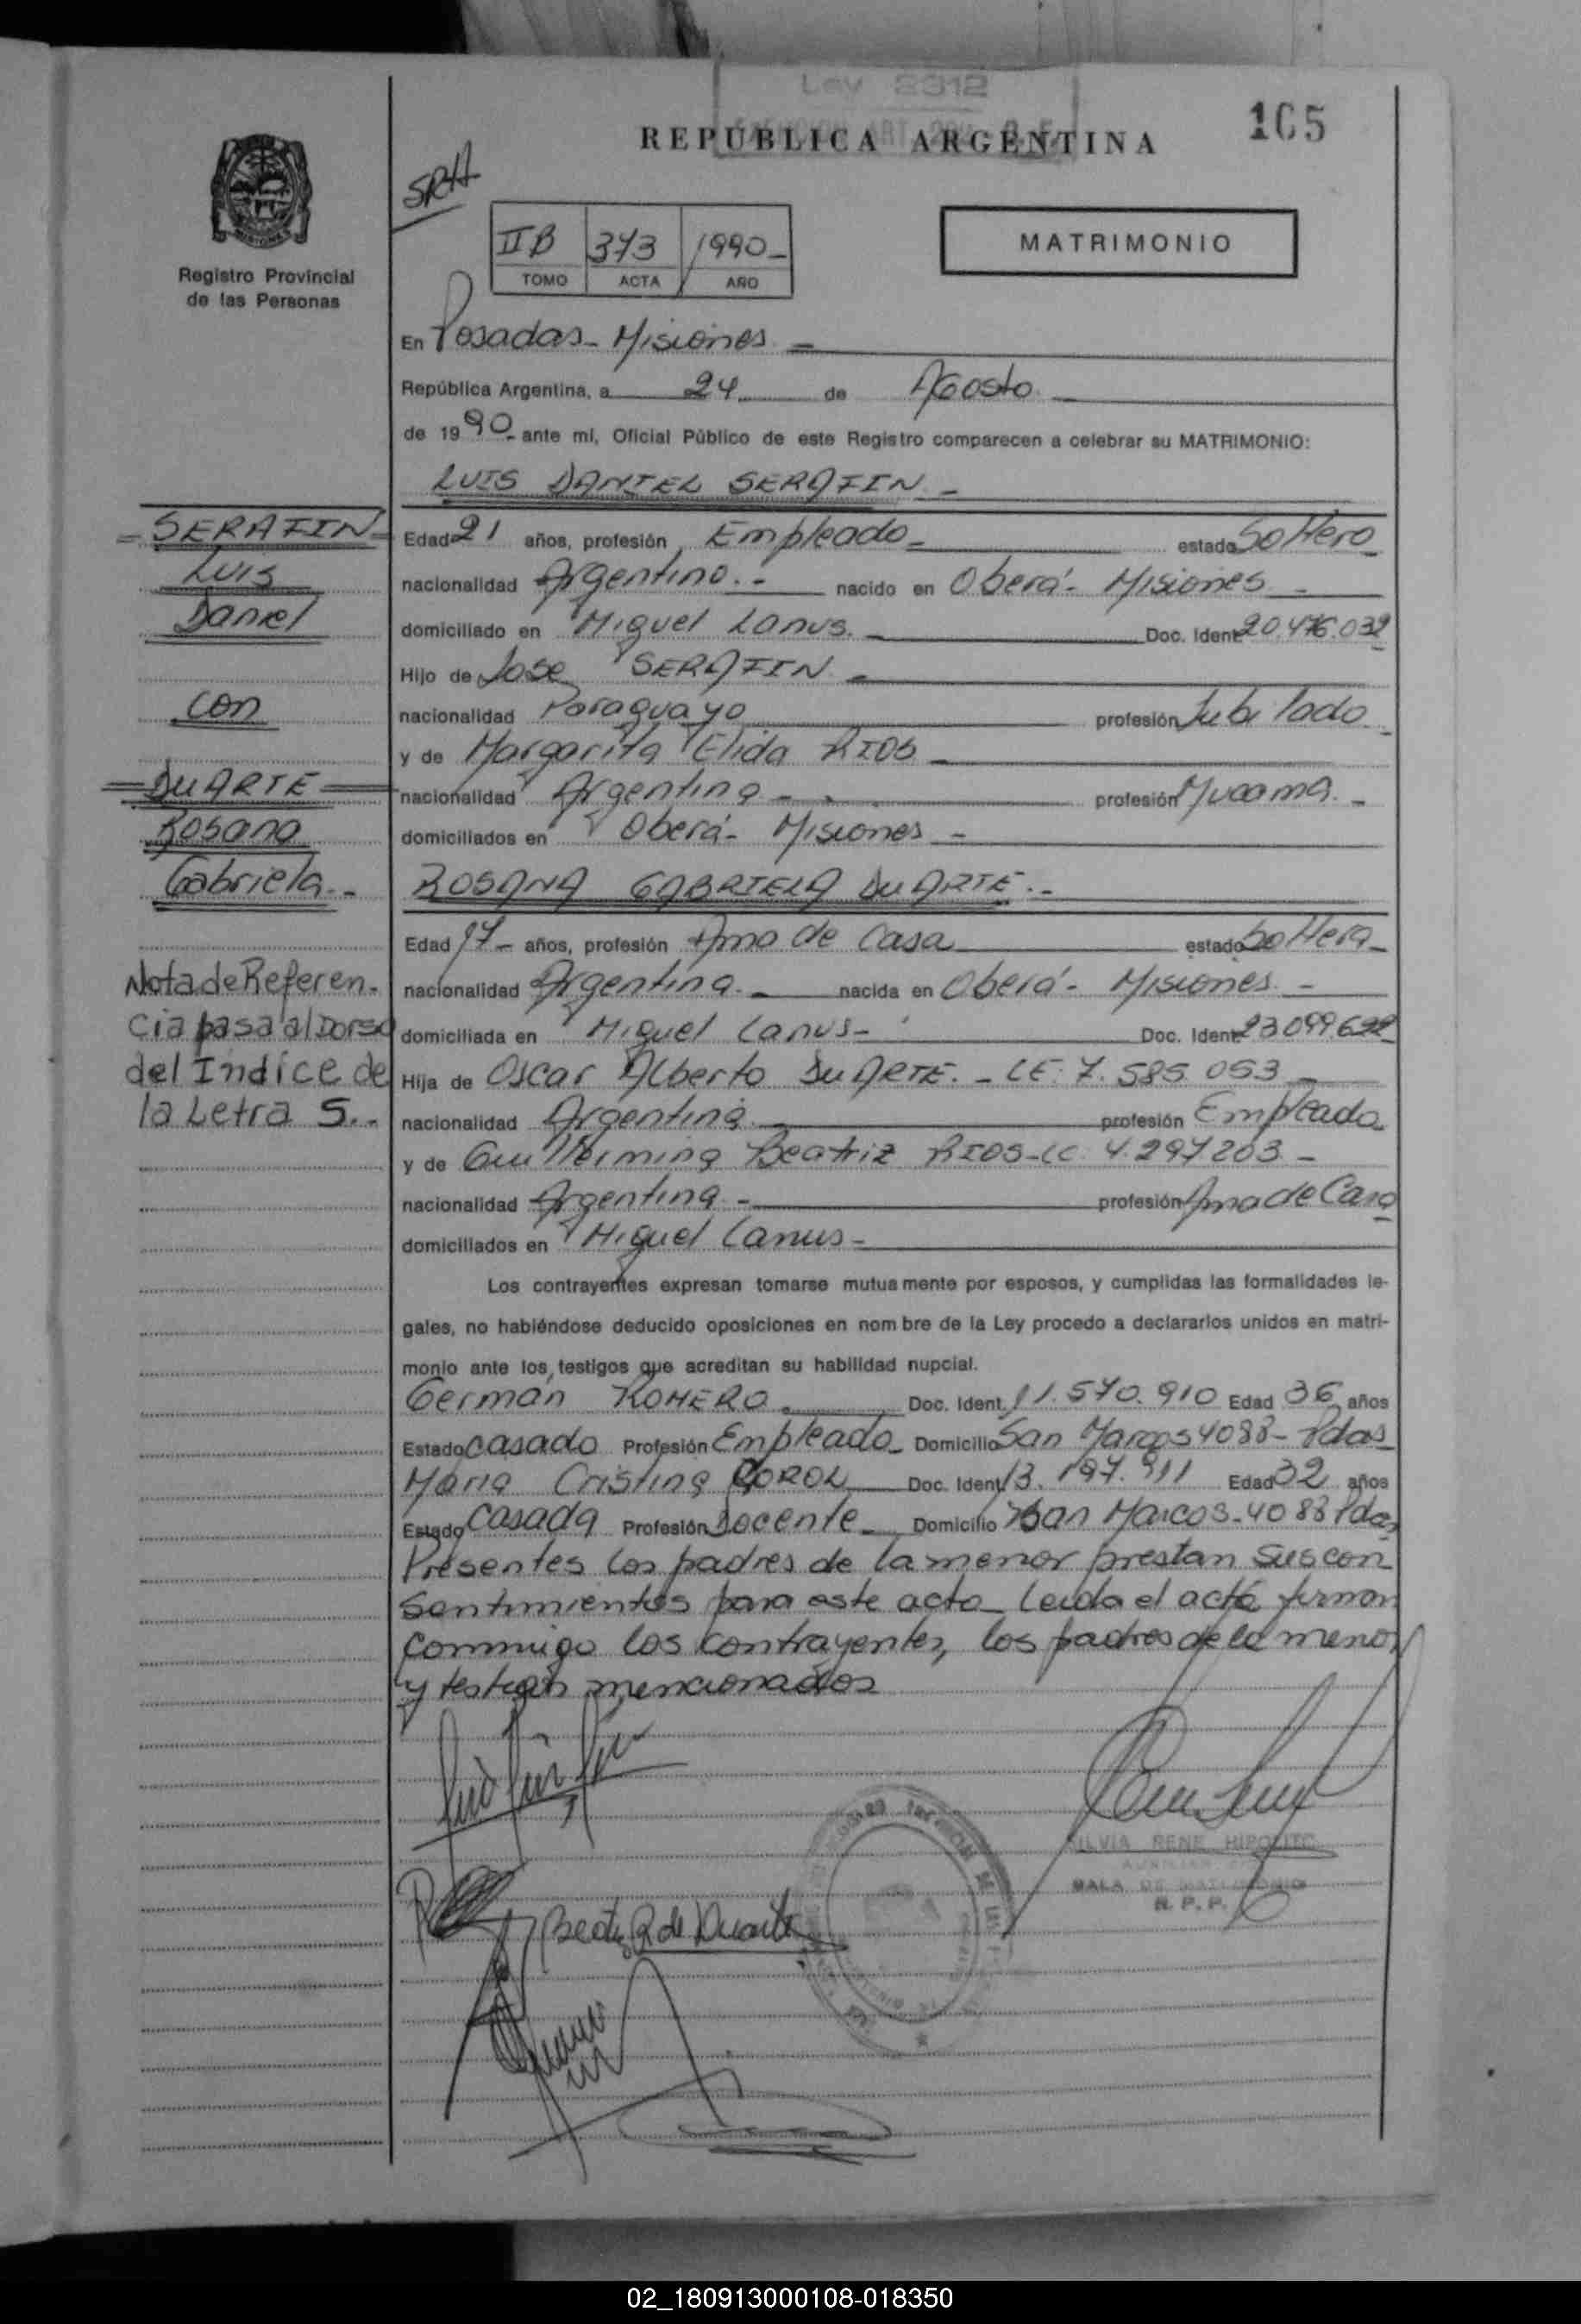 Ley 2312
165
REPUBLICA ARGENTINA
SRH
II B 373 1990-
TOMO ACTA AÑO
MATRIMONIO
Registro Provincial
de las Personas
En Posadas- Misiones -
República Argentina, a 24 de Agosto
de 1990- ante mí, Oficial Público de este Registro comparecen a celebrar su MATRIMONIO:
LUIS DANIEL SERAFIN -
= SERAFIN =
Luis
Daniel
con
DUARTE
Rosana
Gabriela.-
Nota de Referen-
cia pasa al Dorso
del Indice de
la Letra S..
Edad 21 años, profesión Empleado- estado Soltero
nacionalidad Argentino.- nacido en Oberá- Misiones -
domiciliado en Miguel Lanus. - Doc. Ident. 20.476.032
Hijo de Jose SERAFIN -
nacionalidad Paraguayo profesión Jubilado
y de Margarita Elida RIOS -
nacionalidad Argentina - profesión Mucama. -
domiciliados en Oberá- Misiones -
ROSANA GABRIELA DUARTE.-
Edad 17- años, profesión Ama de Casa estado Soltera-
nacionalidad Argentina.- nacida en Oberá- Misiones. -
domiciliada en Miguel Lanus- Doc. Ident. 23.099.692
Hija de Oscar Alberto DUARTE. - LE: 7.585.053 -
nacionalidad Argentina profesión Empleado
y de Guillermina Beatriz RIOS- LC: 4.297.203 -
nacionalidad Argentina - profesión Ama de Casa
domiciliados en Miguel Lanus -
Los contrayentes expresan tomarse mutuamente por esposos, y cumplidas las formalidades le-
gales, no habiéndose deducido oposiciones en nombre de la Ley procedo a declararlos unidos en matri-
monio ante los testigos que acreditan su habilidad nupcial.
Germán ROMERO. Doc. Ident. 11.570.910 Edad 36 años
Estado casado Profesión Empleado- Domicilio San Marcos 4088- Pdas
Maria Cristina Doc. Ident. 13.197.911 Edad 32 años
Estado Casada Profesión Docente- Domicilio San Marcos-4088 Pdas
Presentes los padres de la menor prestan sus con
sentimientos para este acto- Leida el acta firman
conmigo los contrayentes, los padres de la menor
y testigos mencionados
SILVIA RENE HIPOLITO
SALA DE MATRIMONIO
R. P. P.
Beatriz R de Duarte
02_180913000108-018350